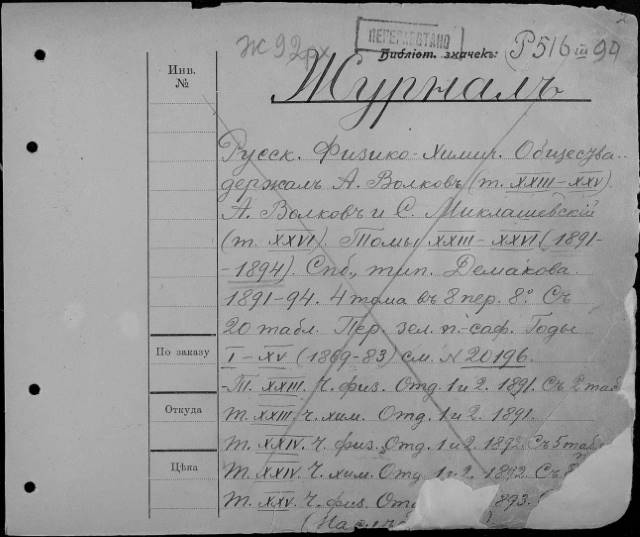 Ж92рх
ПЕРЕРАБОТАНО
Библіот. значекъ: Р516 III 94
Журналъ
Инв.
№
Русск. Физико-Химич. Общества.
держалъ А. Волковъ (т. XXIII–XXV).
А. Волковъ и С. Миклашевскій
(т. XXVI). Томы XXIII–XXVI (1891-
-1894). Спб., тип. Демакова.
1891-94. 4 тома въ 8 пер. 8°. Съ
20 табл. Пер. зел. п.-саф. Годы
По заказу
I–XV (1869-83) см. N 20196.
-Т. XXIII. Ч. физ. Отд. 1 и 2. 1891. Съ 2 таб
Откуда
Т. XXIII. Ч. хим. Отд. 1 и 2. 1891.
Т. XXIV. Ч. физ. Отд. 1 и 2. 1892. Съ 5 табл
Цѣна
Т. XXIV. Ч. хим. Отд. 1 и 2. 1892. Съ
Т. XXV. Ч. физ. Отд 1893.